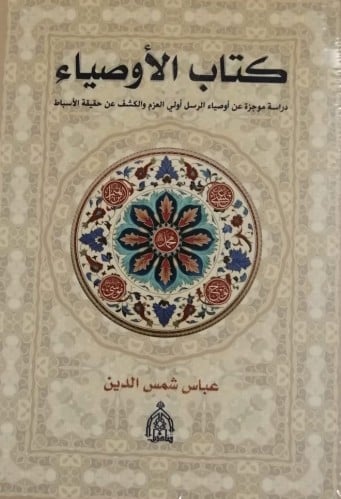 كتاب الأوصياء
دراسة موجزة عن أوصياء الرسل أولي العزم والكشف عن حقيقة الأسباط
محمد
عباس شمس الدين